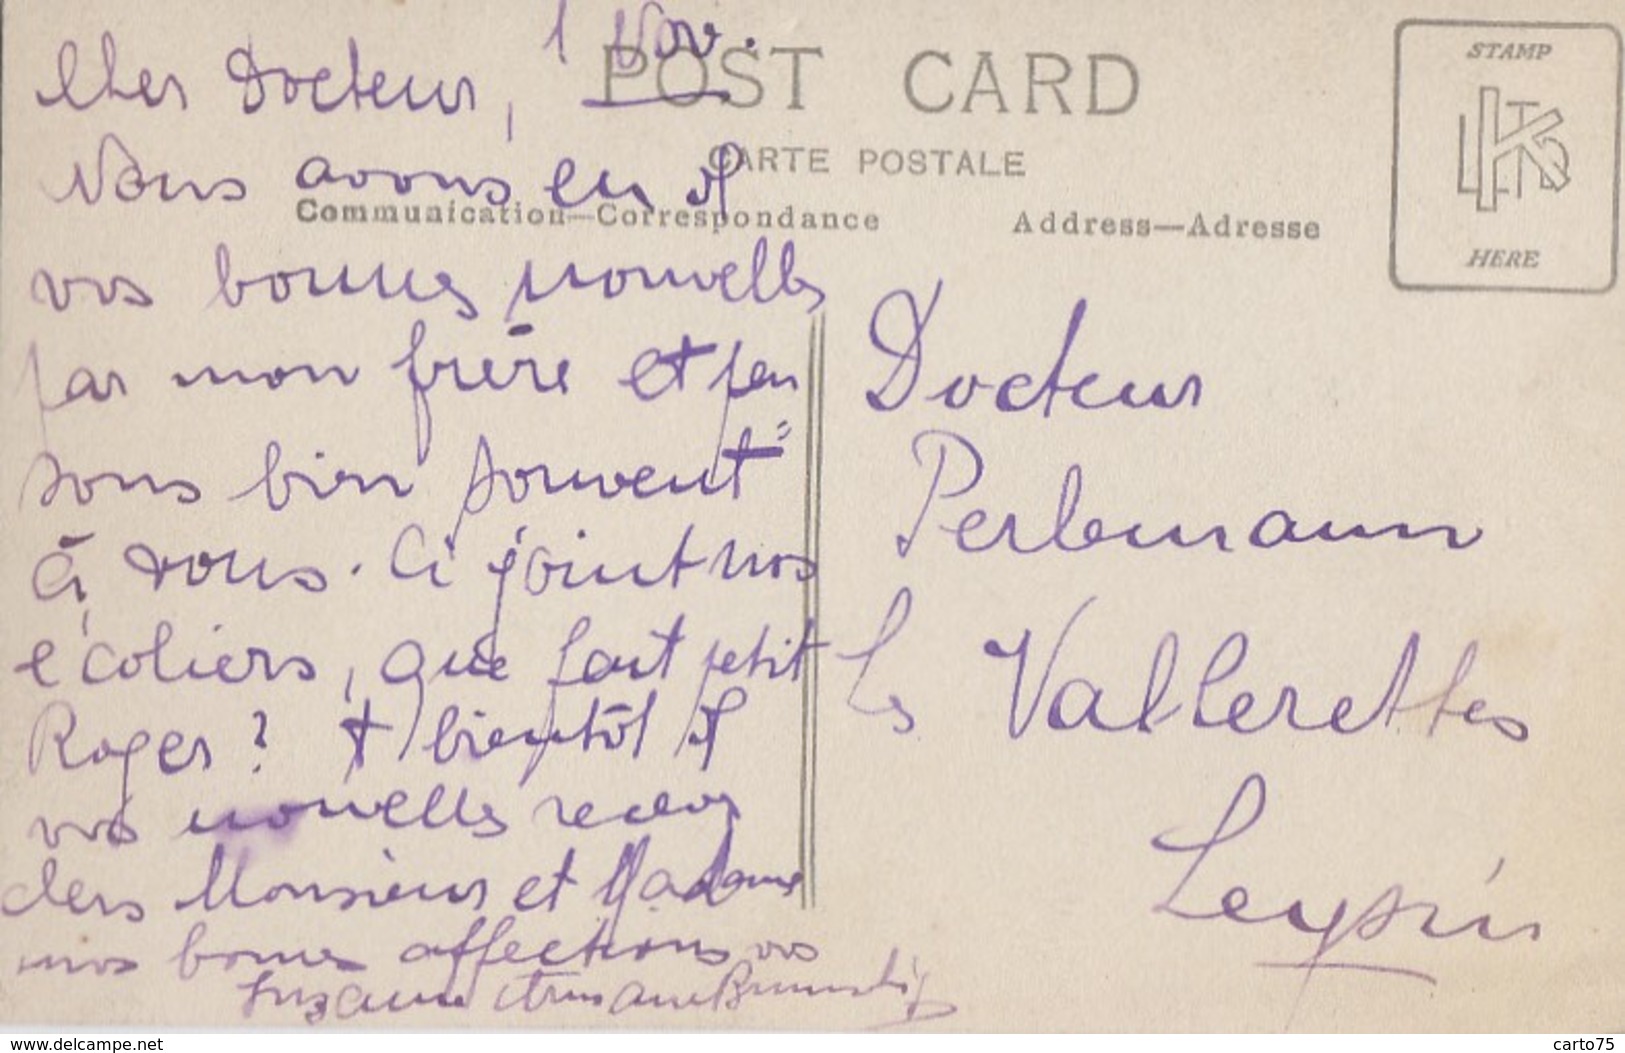 1 Nov.
Cher Docteur,
POST CARD
CARTE POSTALE
Communication—Correspondance
Address—Adresse
STAMP
HERE
Nous avons eu
vos bonnes nouvelles
par mon frère et pen
sons bien souvent
à vous. Ci joint nos
écoliers, que fait petit
Roger? A bientôt
vos nouvelles recevez
chers Monsieur et Madame
nos bonnes affections vos
Suzanne et
Docteur
Perlemann
Les Vallerettes
Leysin
www.delcampe.net
carto75